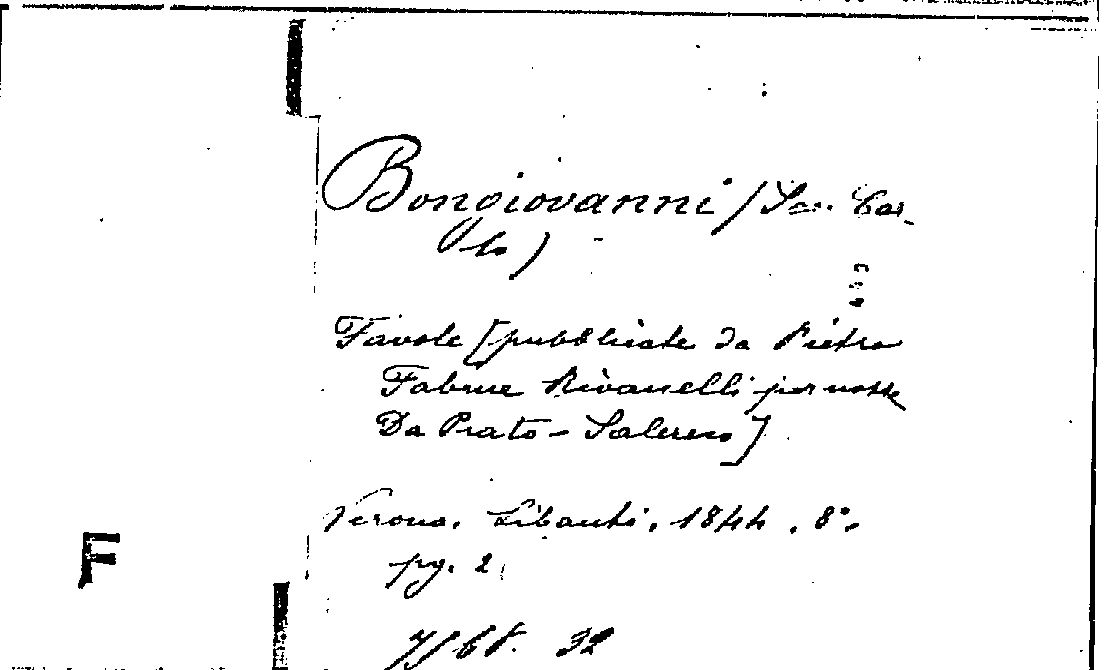 Bongiovanni (San Car-
lo)
Favole [pubblicate da Pietro
Fabrue Rivanelli per nozze
Da Prato - Salerno]
Verona. Libanti. 1844. 8°.
pg. 2
F
32